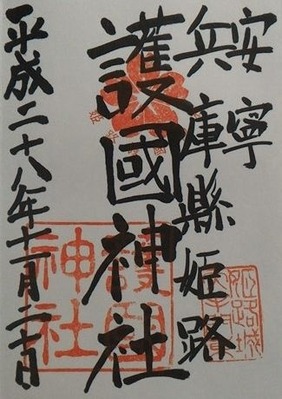 安寧
兵庫縣姫路
護國神社
平成二十八年十一月二十日
護國
神社